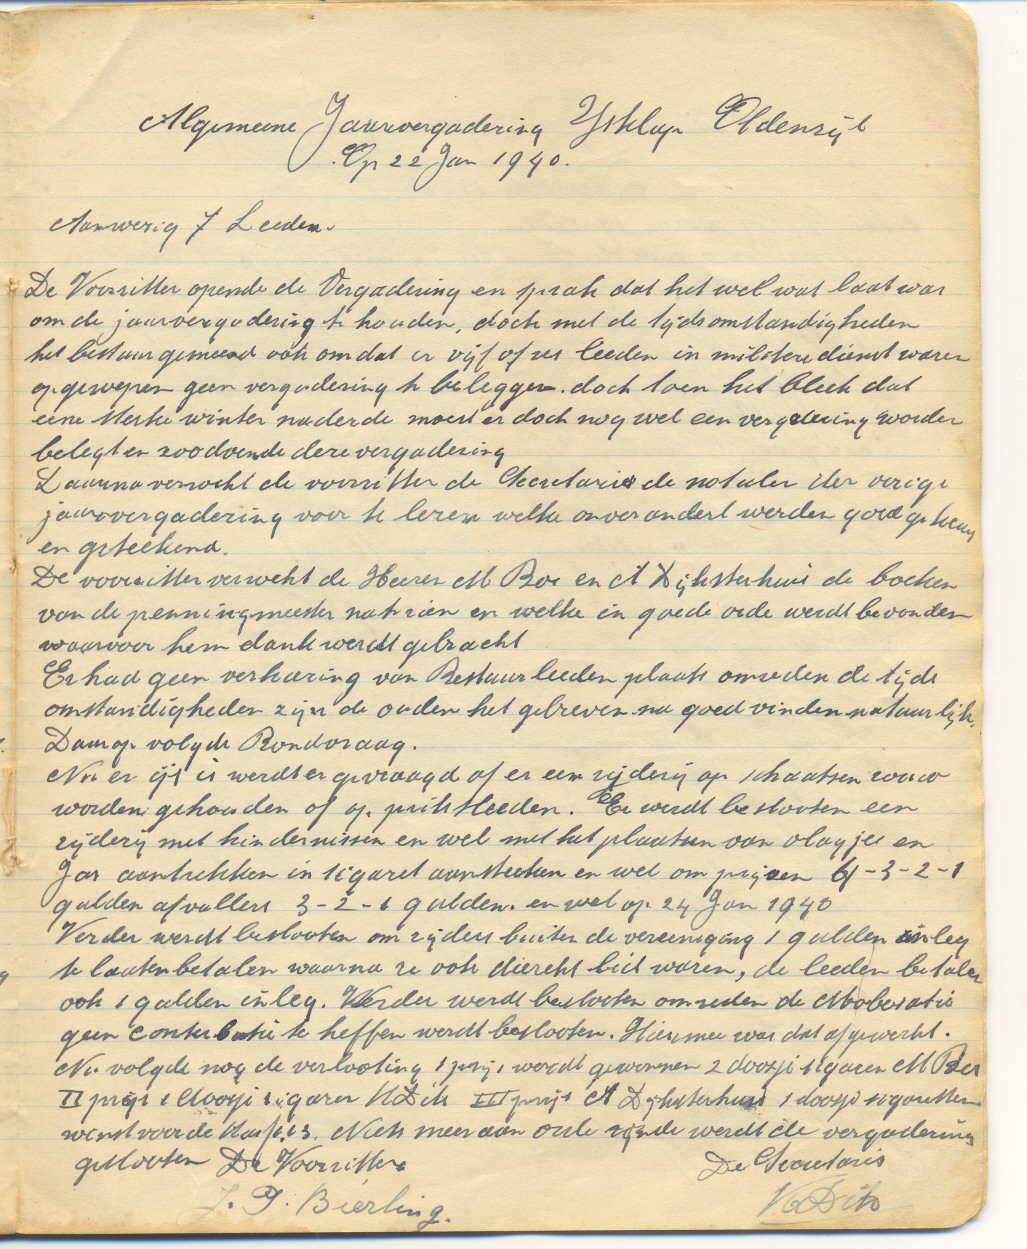 Algemeene Jaarvergadering Ysklup Oldenzijl
Op 22 Jan 1940.
Aanwezig 7 Leeden.
De Voorzitter opende de Vergadering en sprak dat het wel wat laat was
om de jaarvergadering te houden, doch met de tijdsomstandigheden
het bestuur gemeend ook omdat er vijf of zes leeden in militere dienst waren
opgeroepen geen vergadering te beleggen. doch toen het bleek dat
eene sterke winter naderde moest er doch nog wel een vergadering worden
belegt en zoodoende deze vergadering
Daarna verzocht de voorzitter de Secretaris de notulen der vorige
jaarvergadering voor te lezen welke onverandert werden goed gekeurd
en geteekend.
De voorzitter verzocht de Heeren M Bos en A Dijksterhuis de boeken
van de penningmeester natezien en welke in goede orde werdt bevonden
waarvoor hem dank werdt gebracht
Er had geen verkiezing van Bestuurleeden plaats omreden de tijds
omstandigheden zijn de ouden het gebleven na goedvinden natuurlijk.
Daarop volgde Rondvraag.
Nu er ijs is werdt er gevraagd of er een rijderij op schaatsen zouw
worden gehouden of op priksleeden. Er werdt beslooten een
rijderij met hindernissen en wel met het plaatsen van vlagjes en
Jas aantrekken en sigaret aansteeken en wel om prijzen 6-3-2-1
gulden afvallers 3-2-1 gulden. en wel op 24 Jan 1940
Verder werdt beslooten om rijders buiten de vereeniging 1 gulden inleg
te laaten betalen waarna ze ook dierekt lid waren, de leeden betalen
ook 1 gulden inleg. Verder werdt beslooten omreden de Mobelsatie
geen contrebutie te heffen werdt beslooten. Hiermee was dat afgewerkt.
Nu volgde nog de verlooting 1 prijs wordt gewonnen 2 doosje sigaren M Bos
II prijs 1 doosje sigaren K Dik III prijs A Dijksterhuis 1 doosje sigaretten
winst voor de Kas Niets meer aan orde zijnde werdt de vergadering
geslooten De Voorzitter De Secretaris
J. P. Bierling. K Dik